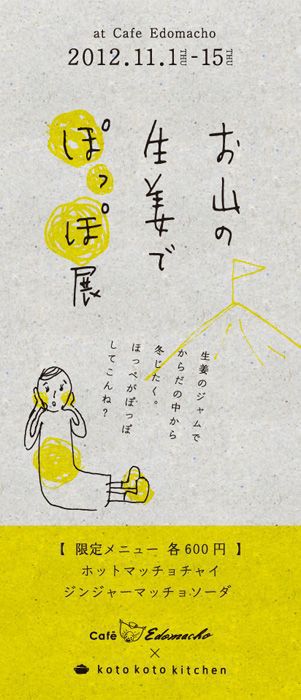 at Cafe Edomacho
2012.11.1THU-15THU
お山の
生姜で
ぽっぽ展
生姜のジャムで
からだの中から
冬じたく。
ほっぺがぽっぽ
してこんね?
【 限定メニュー 各600円 】
ホットマッチョチャイ
ジンジャーマッチョソーダ
Café Edomacho
×
kotokotokitchen